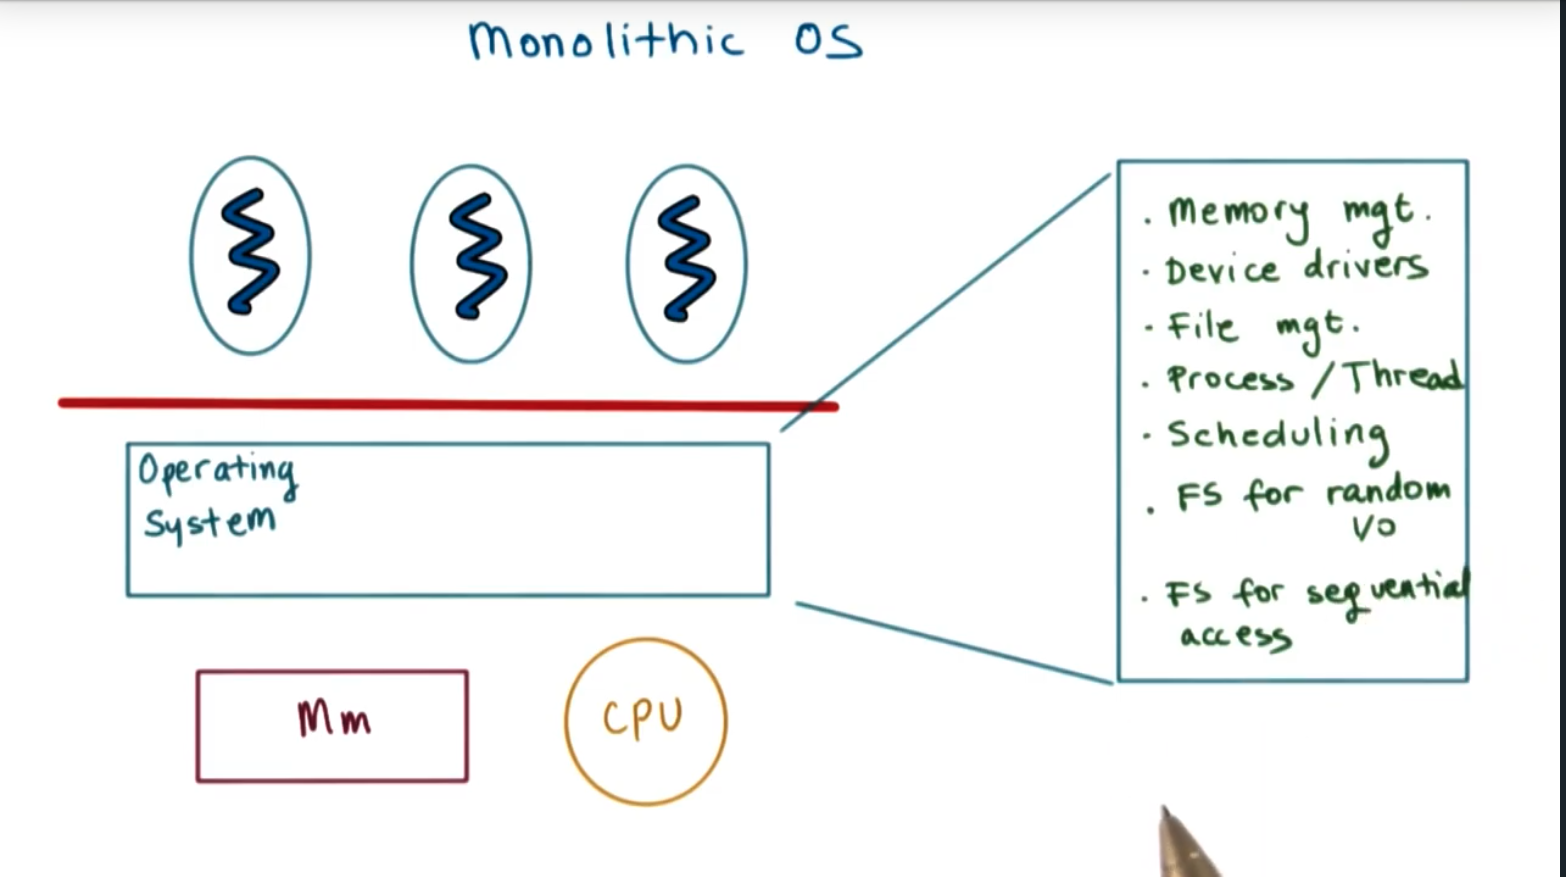 Monolithic OS
Operating
System
Mm
CPU
. Memory mgt.
. Device drivers
. File mgt.
. Process / Thread
. Scheduling
. FS for random
I/O
. FS for sequential
access